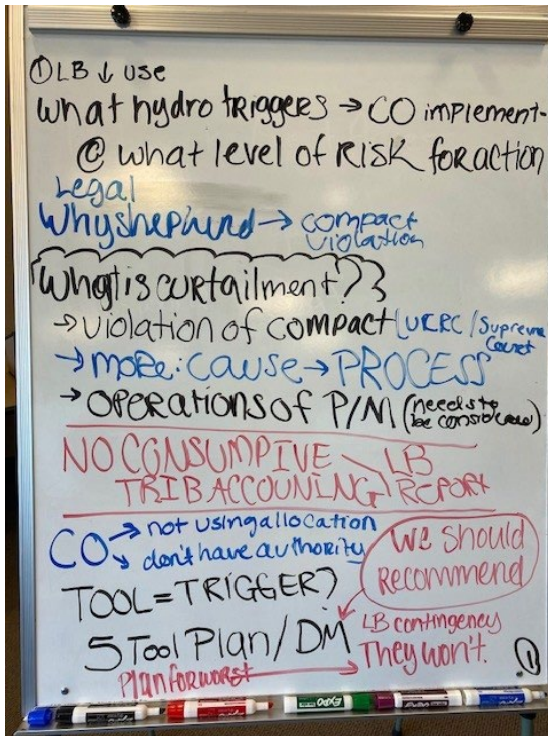 ① LB ↓ USE
What hydro TRIGGERS → CO implement-
@ what level of RISK for action
Legal
Why shepherd → compact
violation
What is curtailment??
→ violation of compact (UCRC / Supreme
Court
→ more: cause → PROCESS
→ OPERATIONS of P/M (needs to
be considered)
NO CONSUMPIVE LB
TRIB ACCOUNING REPORT
CO → not using allocation
→ don't have authority
We should
Recommend
TOOL = TRIGGER?
5 Tool Plan / DM
LB contingency
They won't.
Plan for worst →
①
EXPO